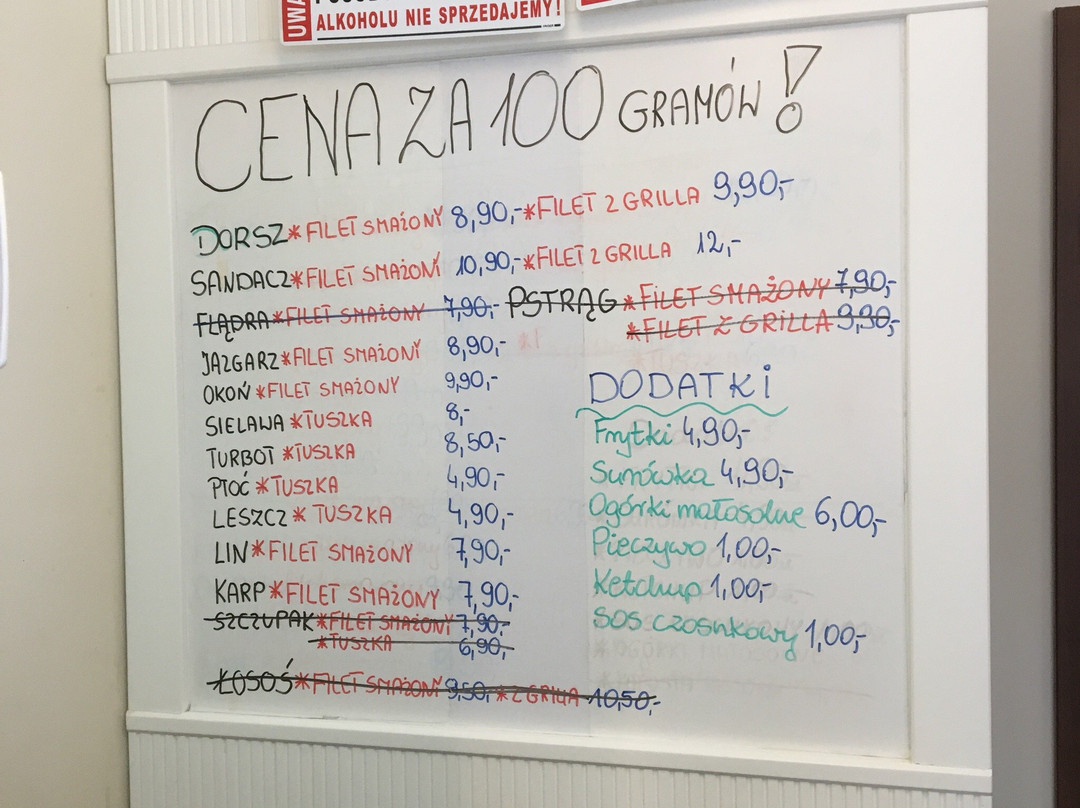 UWA
ALKOHOLU NIE SPRZEDAJEMY!
CENA ZA 100 GRAMÓW!
DORSZ*FILET SMAŻONY 8,90,-*FILET Z GRILLA 9,90,-
SANDACZ*FILET SMAŻONY 10,90,-*FILET Z GRILLA 12,-
FLĄDRA*FILET SMAŻONY 7,90,-
PSTRĄG*FILET SMAŻONY 7,90,-
*FILET Z GRILLA 9,90,-
JAZGARZ*FILET SMAŻONY 8,90,-
OKOŃ*FILET SMAŻONY 9,90,-
SIELAWA*TUSZKA 8,-
TURBOT*TUSZKA 8,50,-
PŁOĆ*TUSZKA 4,90,-
LESZCZ*TUSZKA 4,90,-
LIN*FILET SMAŻONY 7,90,-
KARP*FILET SMAŻONY 7,90,-
SZCZUPAK*FILET SMAŻONY 7,90,-
*TUSZKA 6,90,-
ŁOSOŚ*FILET SMAŻONY 9,50,-*Z GRILLA 10,50,-
DODATKI
Frytki 4,90,-
Surówka 4,90,-
Ogórki małosolne 6,00,-
Pieczywo 1,00,-
Ketchup 1,00,-
SOS czosnkowy 1,00,-